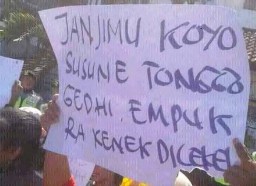 JANJIMU KOYO
SUSUNE TONGGO
GEDHI, EMPUK
RA KENEK DICEKEL